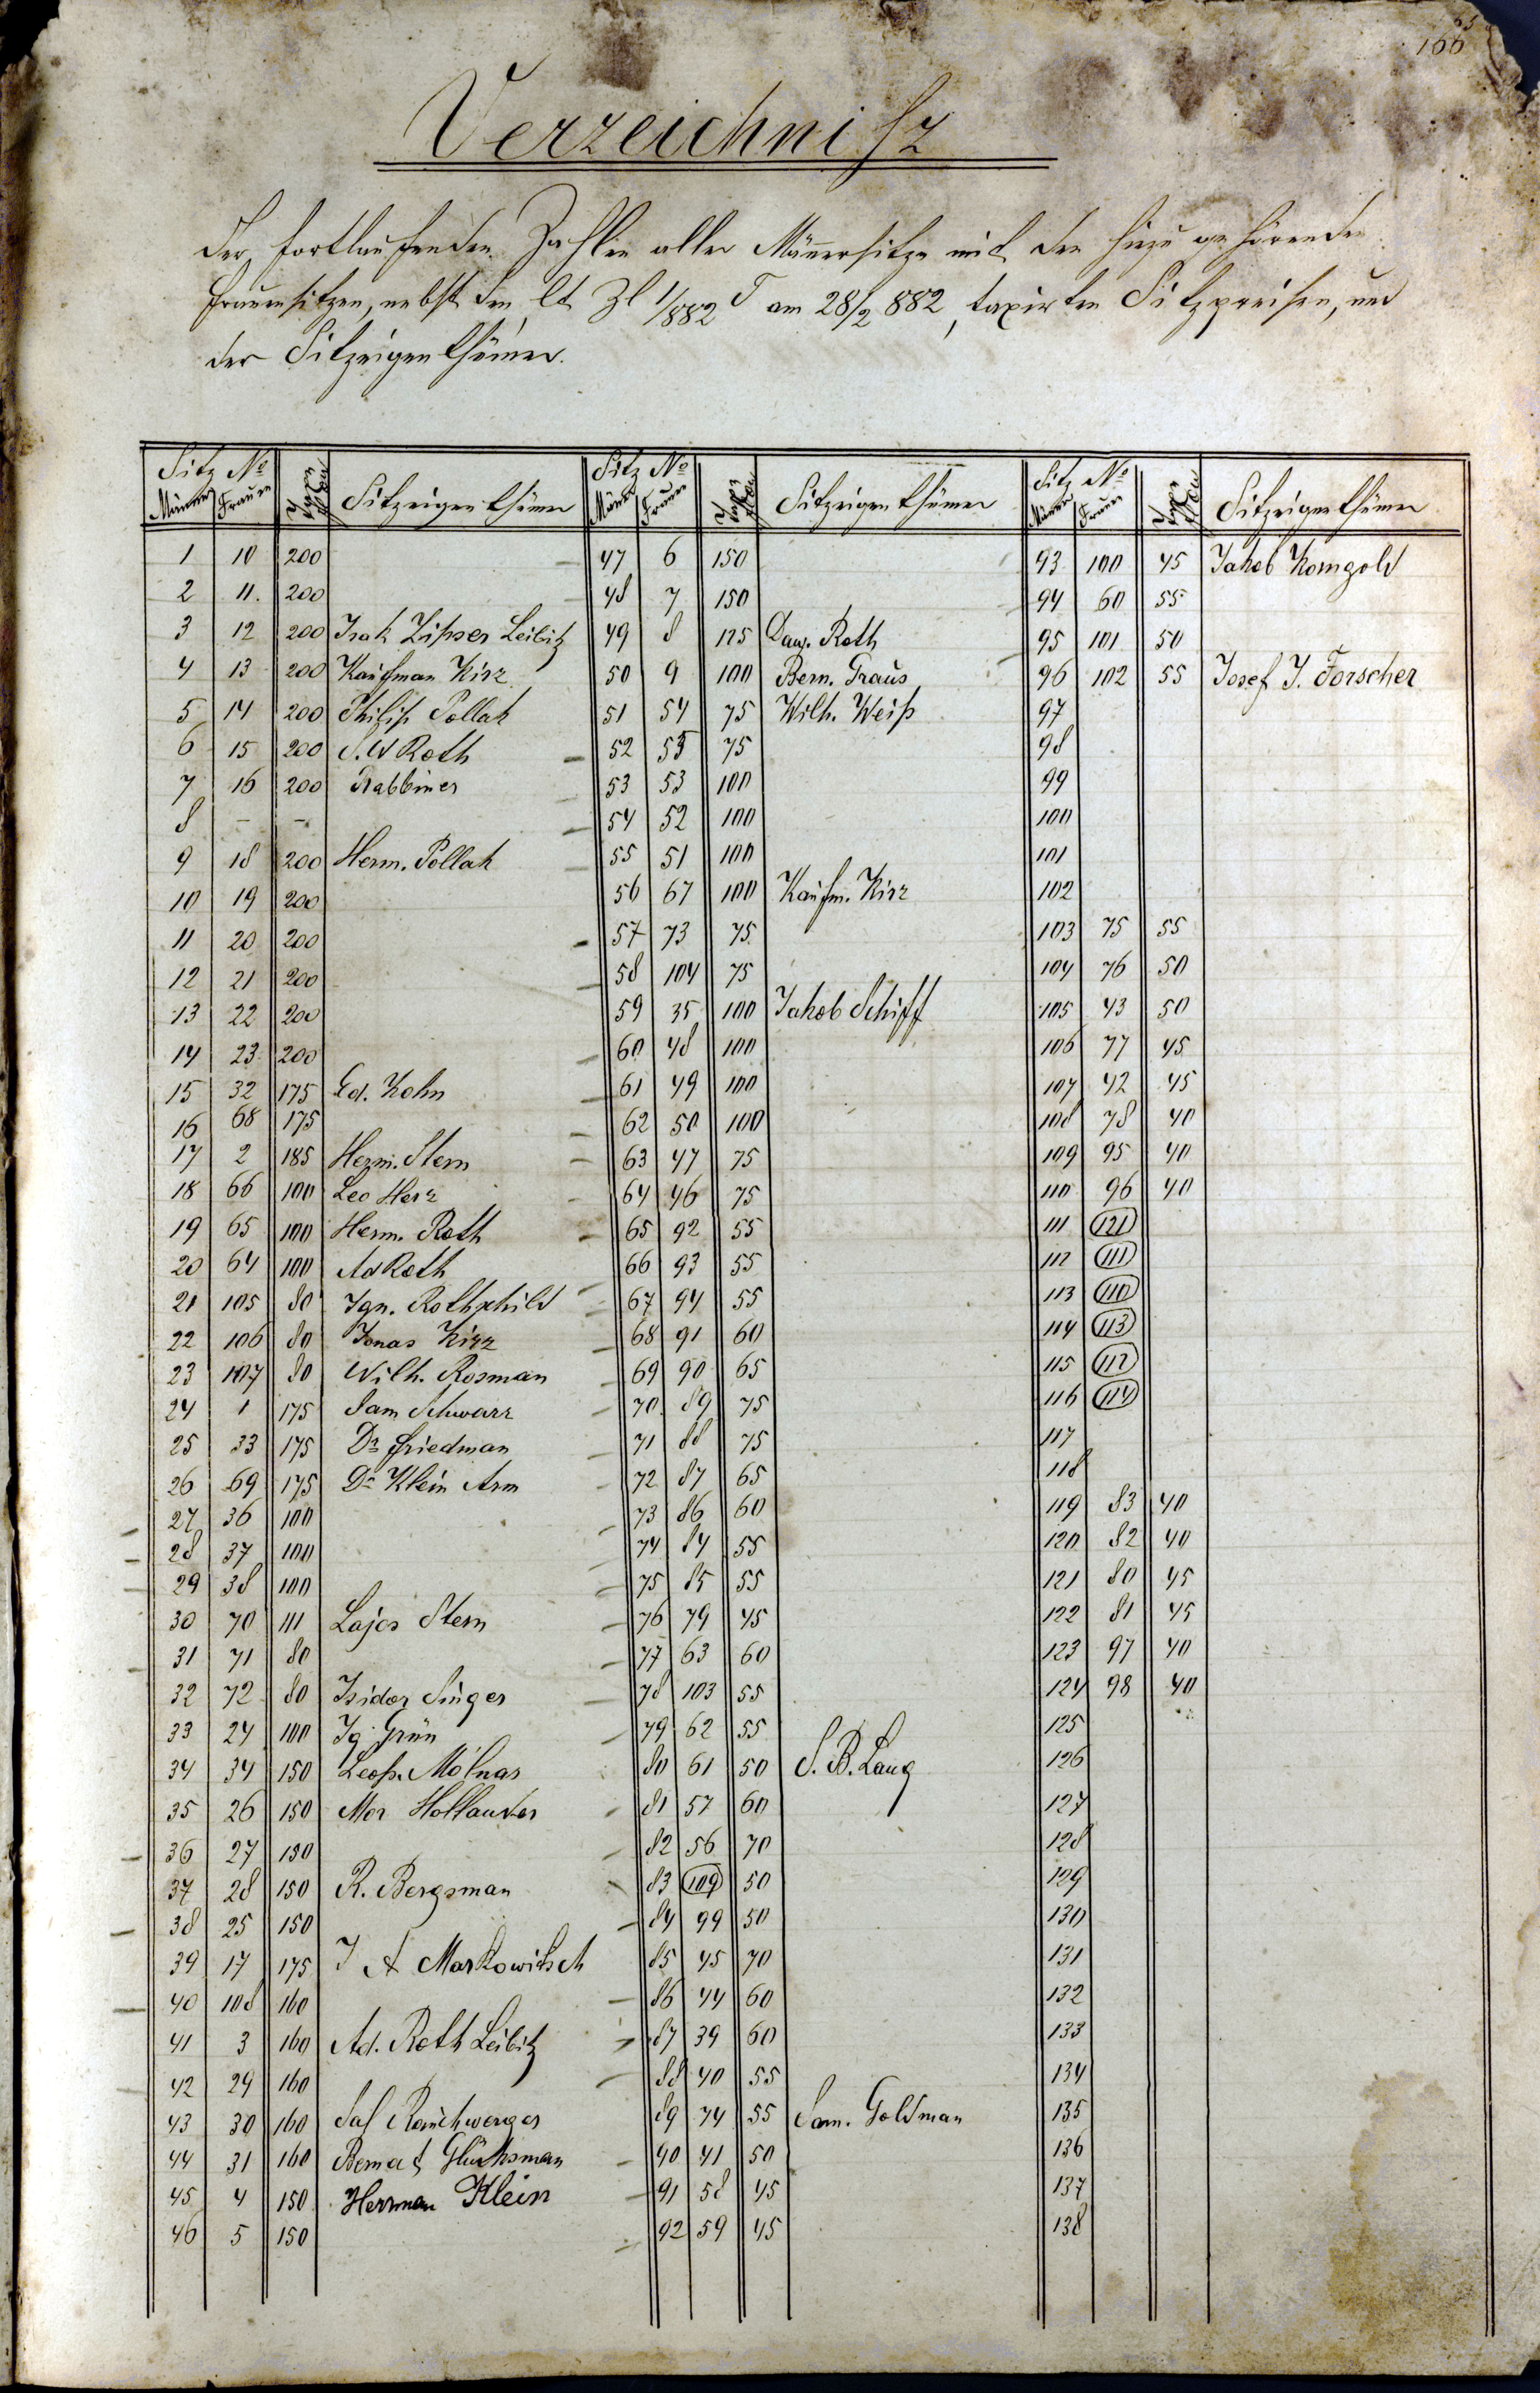 166
Verzeichnisz
der fortlaufenden Zahlen aller Männersitze mit den hiezu gehörenden
Frauensitzen, nebst den lt Zl 1/882 T am 28/2 882, taxirten Sitzpreisen, und
der Sitzeigenthümer.
Sitz No Männer Frauen Sitzeigenthümer Sitz No Männer Frauen Sitzeigenthümer Sitz No Männer Frauen Sitzeigenthümer
1 10 200 47 6 150 93 100 45 Jakob Korngold
2 11. 200 48 7 150 94 60 55
3 12 200 Isak Zipser Leibitz 49 8 125 Dav. Roth 95 101 50
4 13 200 Kaufman Kirz 50 9 100 Bern. Graus 96 102 55 Josef J. Forscher
5 14 200 Philip Pollak 51 54 75 Wilh. Weiß 97
6 15 200 S. W Roth 52 55 75 98
7 16 200 Rabbiner 53 53 100 99
8 – – 54 52 100 100
9 18 200 Herm. Pollak 55 51 100 101
10 19 200 56 67 100 Kaufm. Kirz 102
11 20 200 57 73 75 103 75 55
12 21 200 58 104 75 104 76 50
13 22 200 59 35 100 Jakob Schiff 105 43 50
14 23 200 60 48 100 106 77 45
15 32 175 Ed. Kohn 61 49 100 107 42 45
16 68 175 62 50 100 108 78 40
17 2 185 Herm. Stern 63 47 75 109 95 40
18 66 100 Leo Herz 64 46 75 110 96 40
19 65 100 Herm. Roth 65 92 55 111 121
20 64 100 Ad Roth 66 93 55 112 111
21 105 80 Ign. Rothschild 67 94 55 113 110
22 106 80 Jonas Kirz 68 91 60 114 113
23 107 80 Wilh. Rosman 69 90 65 115 112
24 1 175 Sam Schwarz 70 89 75 116 114
25 33 175 Dr Friedman 71 88 75 117
26 69 175 Dr Klein Arm 72 87 65 118
27 36 100 73 86 60 119 83 40
28 37 100 74 84 55 120 82 40
29 38 100 75 85 55 121 80 45
30 70 111 Lajos Stern 76 79 45 122 81 45
31 71 80 77 63 60 123 97 40
32 72 80 Isidor Singer 78 103 55 124 98 40
33 24 100 Ig Grün 79 62 55 125
34 34 150 Leop. Molnar 80 61 50 S. B. Lang 126
35 26 150 Mor Hollander 81 57 60 127
36 27 150 82 56 70 128
37 28 150 R. Bergsman 83 109 50 129
38 25 150 84 99 50 130
39 17 175 J A Markowitsch 85 45 70 131
40 108 160 86 44 60 132
41 3 160 Ad. Roth Leibitz 87 39 60 133
42 29 160 88 40 55 134
43 30 160 Sal Rauchwerger 89 74 55 Sam. Goldman 135
44 31 160 Bernat Glücksman 90 41 50 136
45 4 150 Herrman Klein 91 58 45 137
46 5 150 92 59 45 138